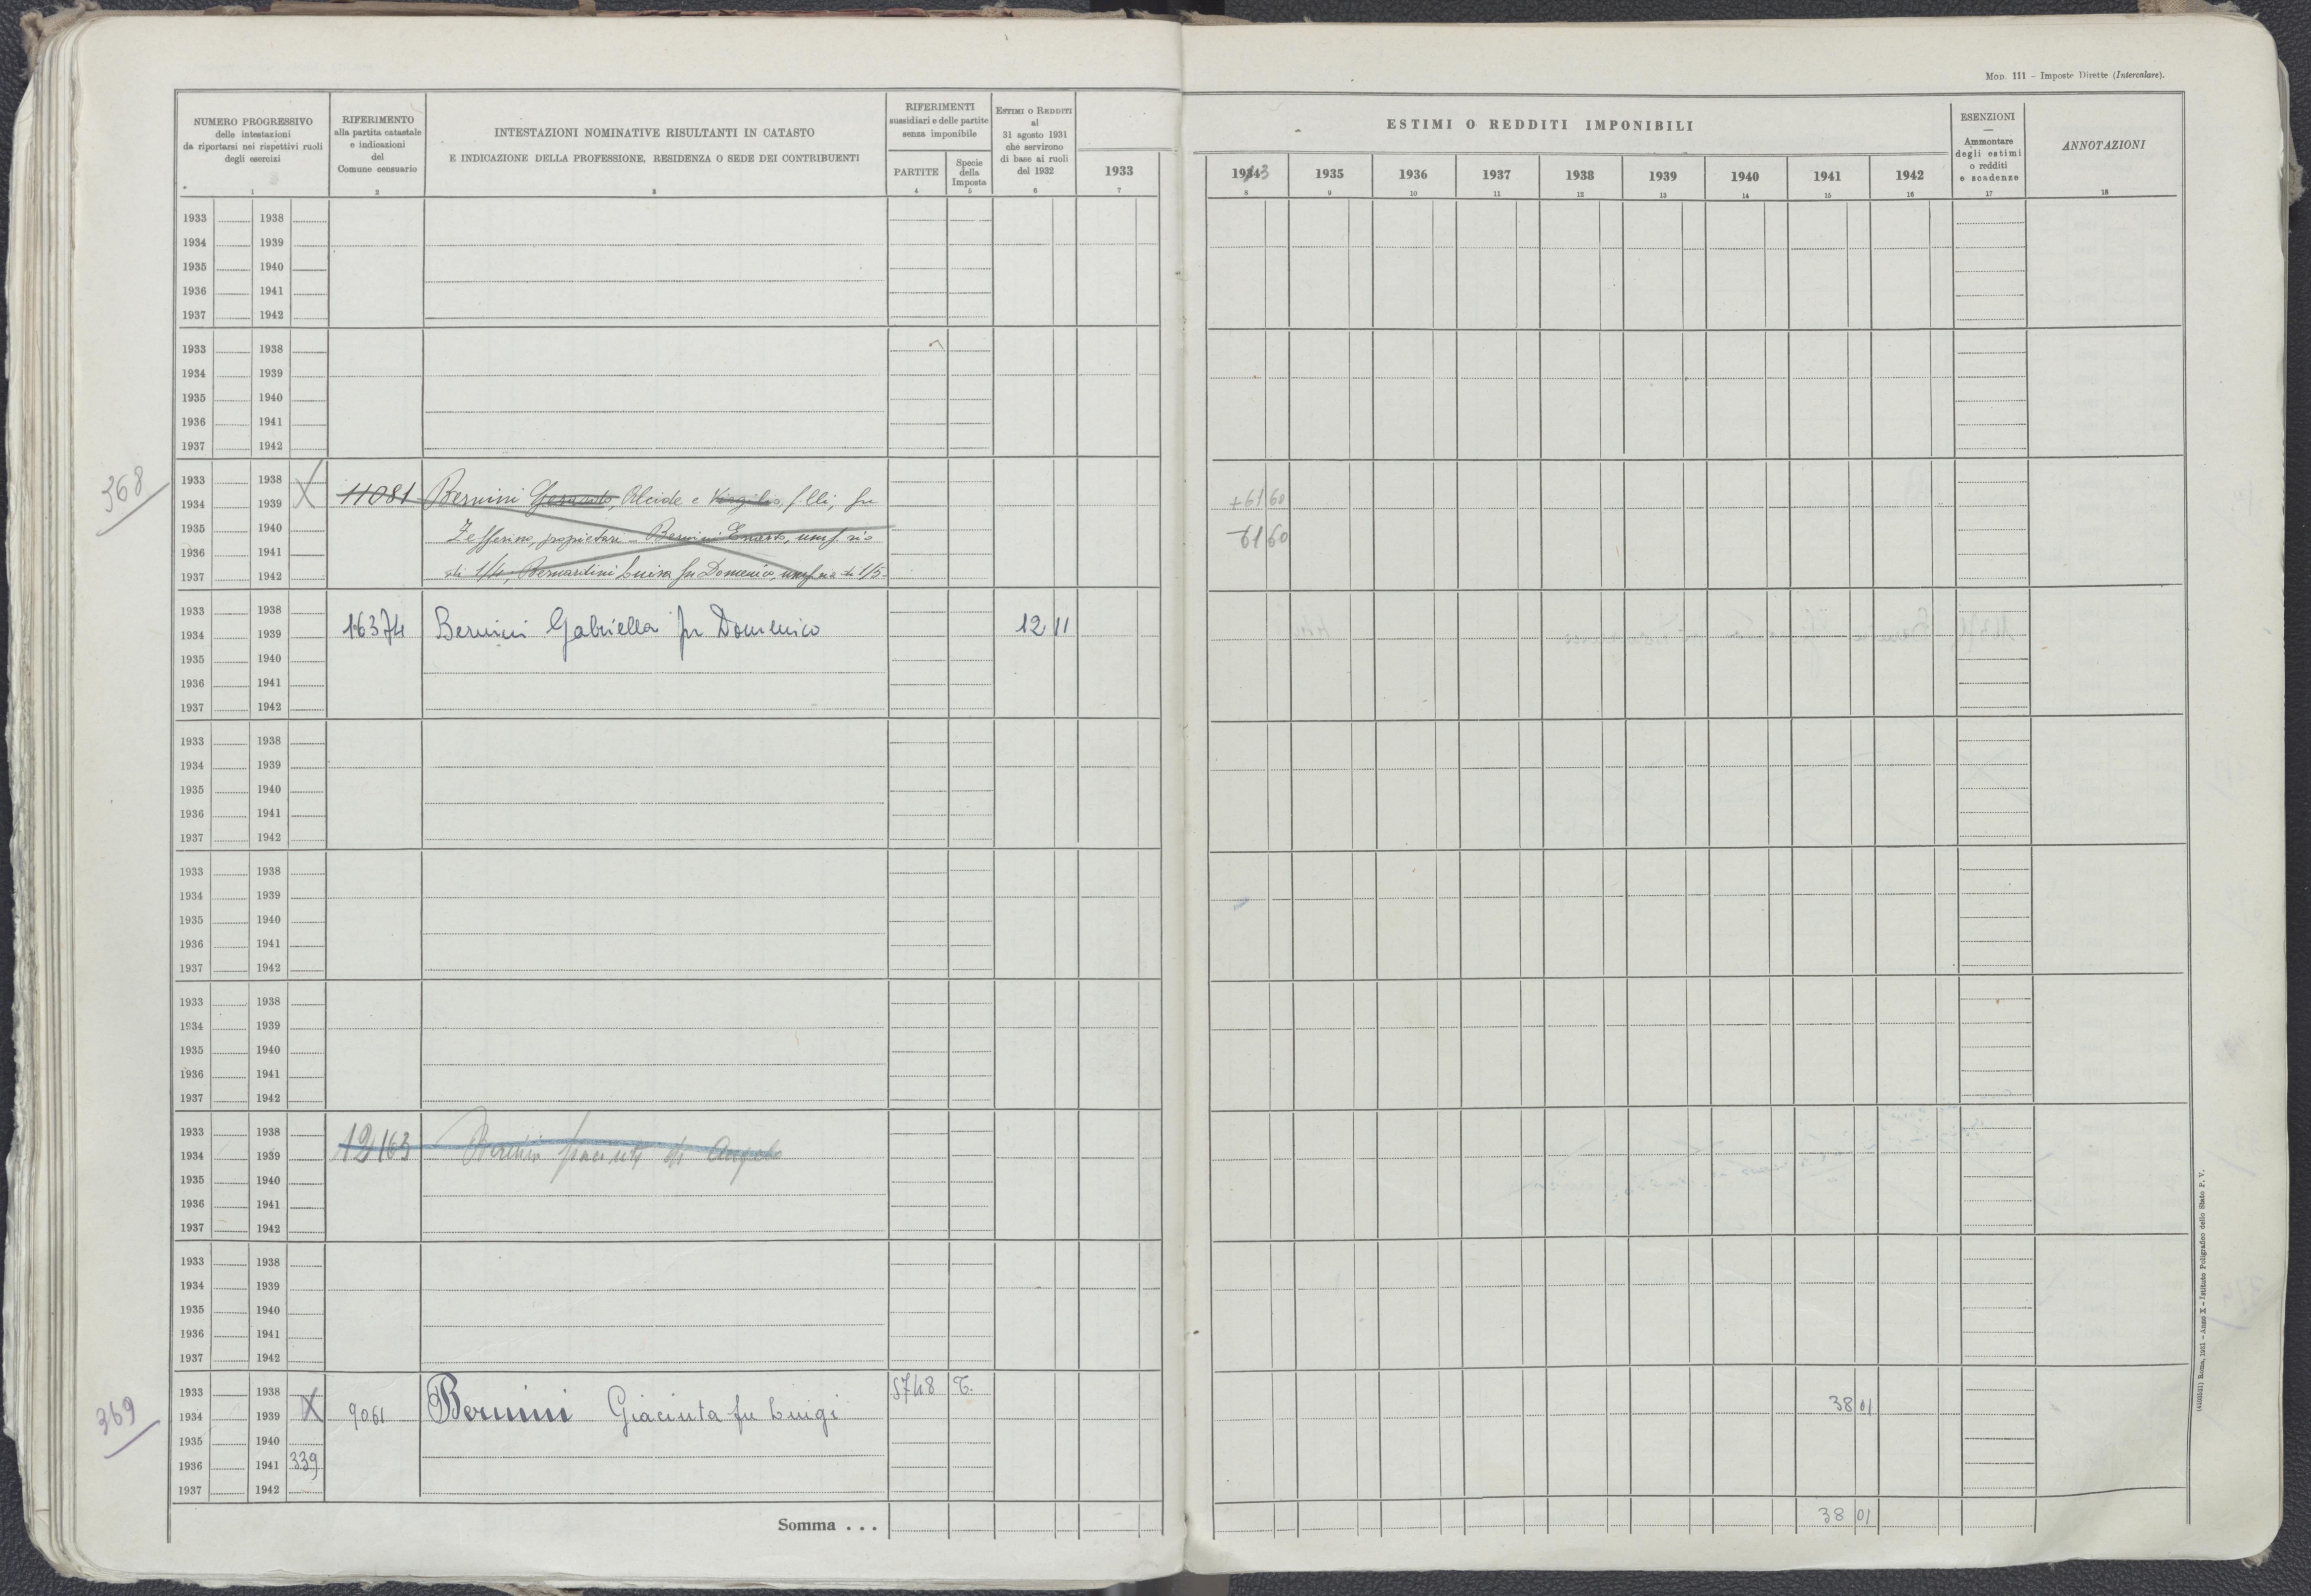 Mod. 111 – Imposte Dirette (Intercalare).
NUMERO PROGRESSIVO
delle intestazioni
da riportarsi nei rispettivi ruoli
degli esercizi
1
RIFERIMENTO
alla partita catastale
e indicazioni
del
Comune censuario
2
INTESTAZIONI NOMINATIVE RISULTANTI IN CATASTO
E INDICAZIONE DELLA PROFESSIONE, RESIDENZA O SEDE DEI CONTRIBUENTI
3
RIFERIMENTI
sussidiari e delle partite
senza imponibile
PARTITE
4
Specie
della
Imposta
5
Estimi o Redditi
al
31 agosto 1931
che servirono
di base ai ruoli
del 1932
6
1933
7
ESTIMI O REDDITI IMPONIBILI
1943 1935 1936 1937 1938 1939 1940 1941 1942
8 9 10 11 12 13 14 15 16
ESENZIONI
—
Ammontare
degli estimi
o redditi
e scadenze
17
ANNOTAZIONI
18
1933 1938
1934 1939
1935 1940
1936 1941
1937 1942
1933 1938
1934 1939
1935 1940
1936 1941
1937 1942
368
1933 1938 X
1934 1939 11081 Bernini Alcide e Virgilio, f.lli, fu +61 60
1935 1940 Zefferino, proprietari – Bernini Ernesto, usuf.rio –61 60
1936 1941
1937 1942 di 1/4, Bernardini Luisa fu Domenico, usuf.ria di 1/5
1933 1938
1934 1939 16374 Bernini Gabriella fu Domenico 12 11
1935 1940
1936 1941
1937 1942
1933 1938
1934 1939
1935 1940
1936 1941
1937 1942
1933 1938
1934 1939
1935 1940
1936 1941
1937 1942
1933 1938
1934 1939
1935 1940
1936 1941
1937 1942
1933 1938
1934 1939 12163 Bernini di Angelo
1935 1940
1936 1941
1937 1942
1933 1938
1934 1939
1935 1940
1936 1941
1937 1942
369
1933 1938 X 5748 T.
1934 1939 9061 Bernini Giacinta fu Luigi 38 01
1935 1940
1936 1941 339
1937 1942
Somma . . . 38 01
Roma, 1931 – Anno X – Istituto Poligrafico dello Stato P. V.